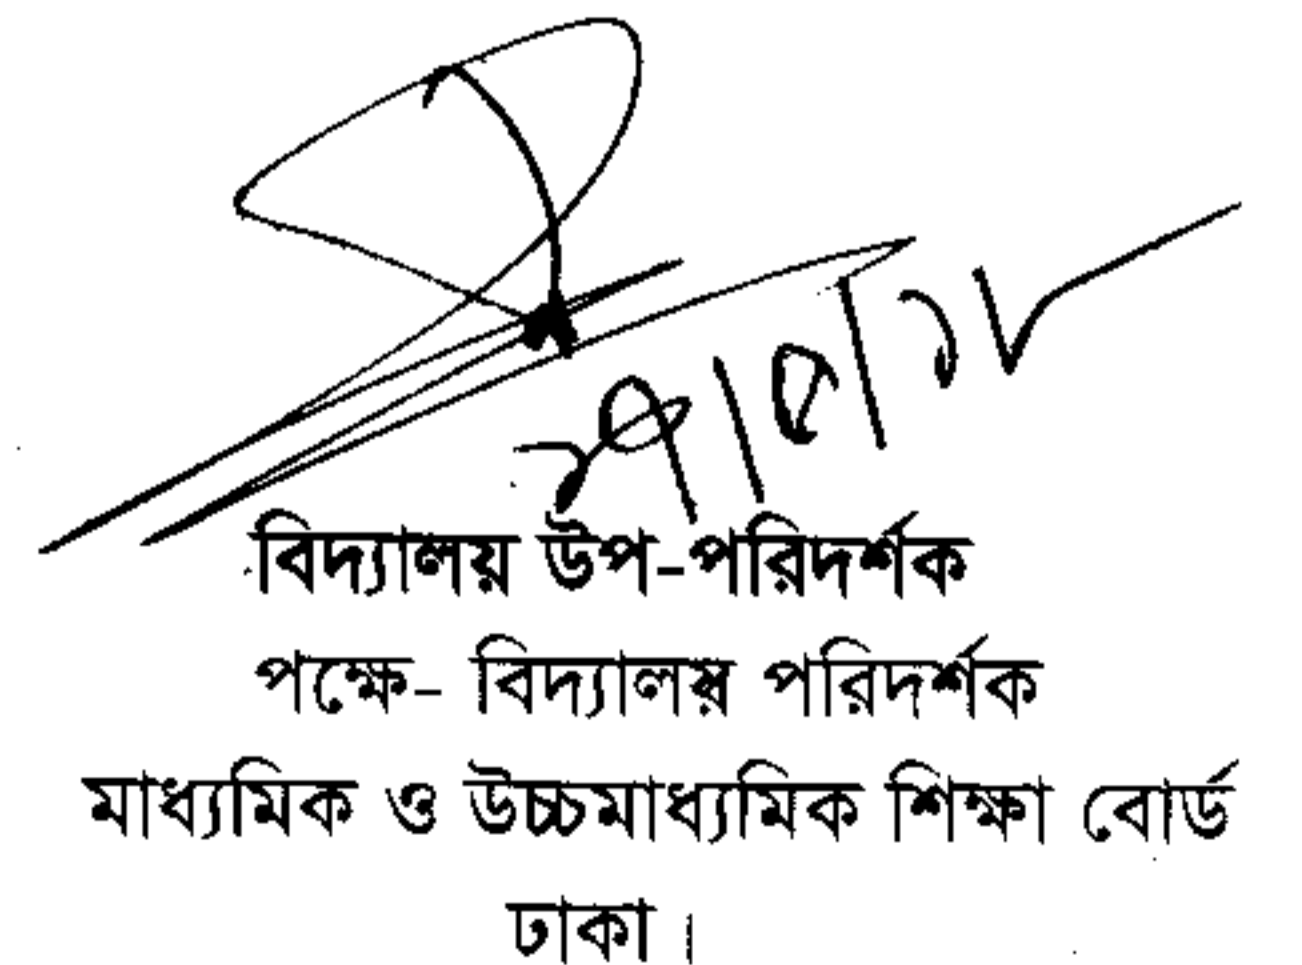 বিদ্যালয় উপ-পরিদর্শক
পক্ষে- বিদ্যালয় পরিদর্শক
মাধ্যমিক ও উচ্চমাধ্যমিক শিক্ষা বোর্ড
ঢাকা।